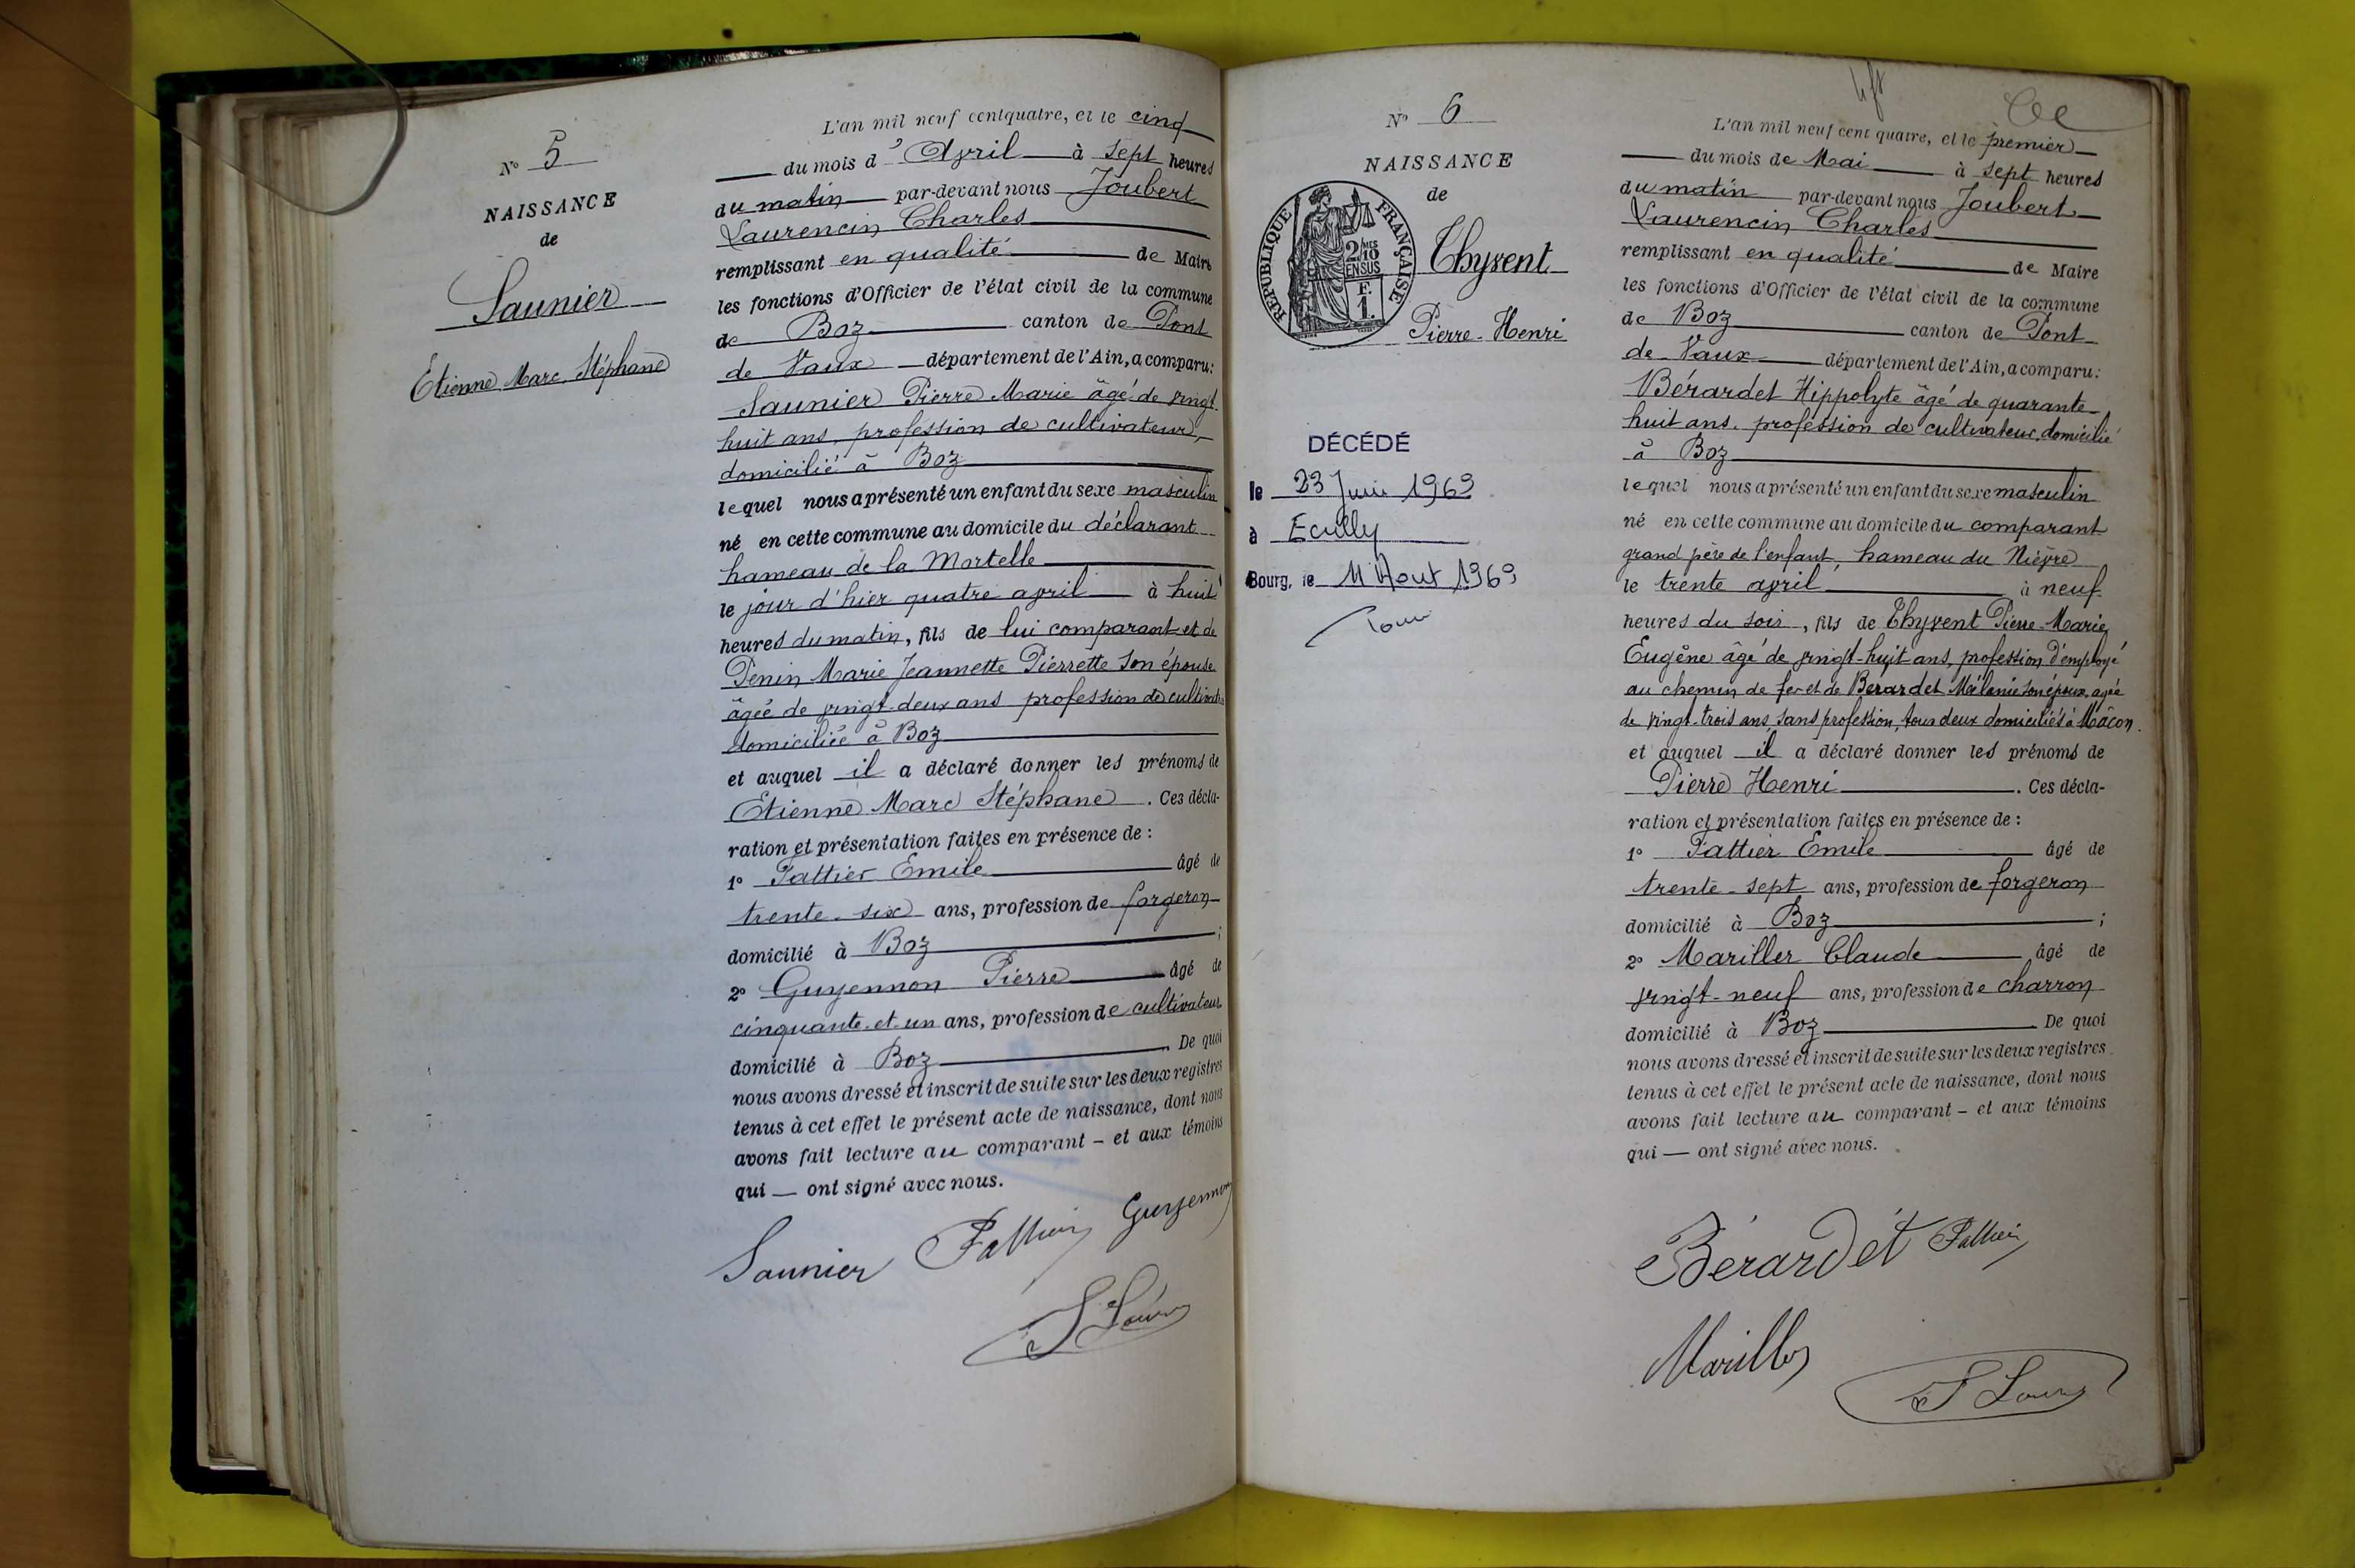 N° 5
NAISSANCE
de
Saunier
Etienne Marc Stéphane
L'an mil neuf cent quatre, et le cinq
du mois d'Avril à sept heures
du matin par-devant nous Joubert
Laurencin Charles
remplissant en qualité de Maire
les fonctions d'Officier de l'état civil de la commune
de Boz canton de Pont
de Vaux département de l'Ain, a comparu:
Saunier Pierre Marie âgé de vingt
huit ans, profession de cultivateur,
domicilié à Boz
lequel nous a présenté un enfant du sexe masculin
né en cette commune au domicile du déclarant
hameau de la Mortelle
le jour d'hier quatre avril à huit
heures du matin, fils de lui comparant et de
Penin Marie Jeannette Pierrette son épouse
âgée de vingt-deux ans profession de
domiciliée à Boz
et auquel il a déclaré donner les prénoms de
Etienne Marc Stéphane. Ces décla-
ration et présentation faites en présence de :
1° Fattier Emile âgé de
trente-six ans, profession de forgeron
domicilié à Boz ;
2° Guyennon Pierre âgé de
cinquante-et-un ans, profession de cultivateur
domicilié à Boz. De quoi
nous avons dressé et inscrit de suite sur les deux registres
tenus à cet effet le présent acte de naissance, dont nous
avons fait lecture au comparant – et aux témoins
qui — ont signé avec nous.
Saunier Fattier Guyennon
N° 6
NAISSANCE
de
RÉPUBLIQUE FRANÇAISE
2/10 MES
EN SUS
F.
1.
Thyvent
Pierre-Henri
DÉCÉDÉ
le 23 Juin 1969
à Ecully
Bourg, le 11 Août 1969
L'an mil neuf cent quatre, et le premier
du mois de Mai à sept heures
du matin par-devant nous Joubert
Laurencin Charles
remplissant en qualité de Maire
les fonctions d'Officier de l'état civil de la commune
de Boz canton de Pont
de Vaux département de l'Ain, a comparu:
Bérardet Hippolyte âgé de quarante-
huit ans, profession de cultivateur, domicilié
à Boz
lequel nous a présenté un enfant du sexe masculin
né en cette commune au domicile du comparant
grand père de l'enfant, hameau du Nièvre
le trente avril à neuf
heures du soir, fils de Thyvent Pierre-Marie
Eugène âgé de vingt-huit ans, profession d'employé
au chemin de fer et de Berardet Mélanie son épouse, agée
de vingt-trois ans, sans profession, tous deux domiciliés à Mâcon.
et auquel il a déclaré donner les prénoms de
Pierre Henri. Ces décla-
ration et présentation faites en présence de :
1° Fattier Emile âgé de
trente-sept ans, profession de forgeron
domicilié à Boz ;
2° Mariller Claude âgé de
vingt-neuf ans, profession de charron
domicilié à Boz. De quoi
nous avons dressé et inscrit de suite sur les deux registres
tenus à cet effet le présent acte de naissance, dont nous
avons fait lecture au comparant – et aux témoins
qui — ont signé avec nous.
Bérardet Fattier
Mariller